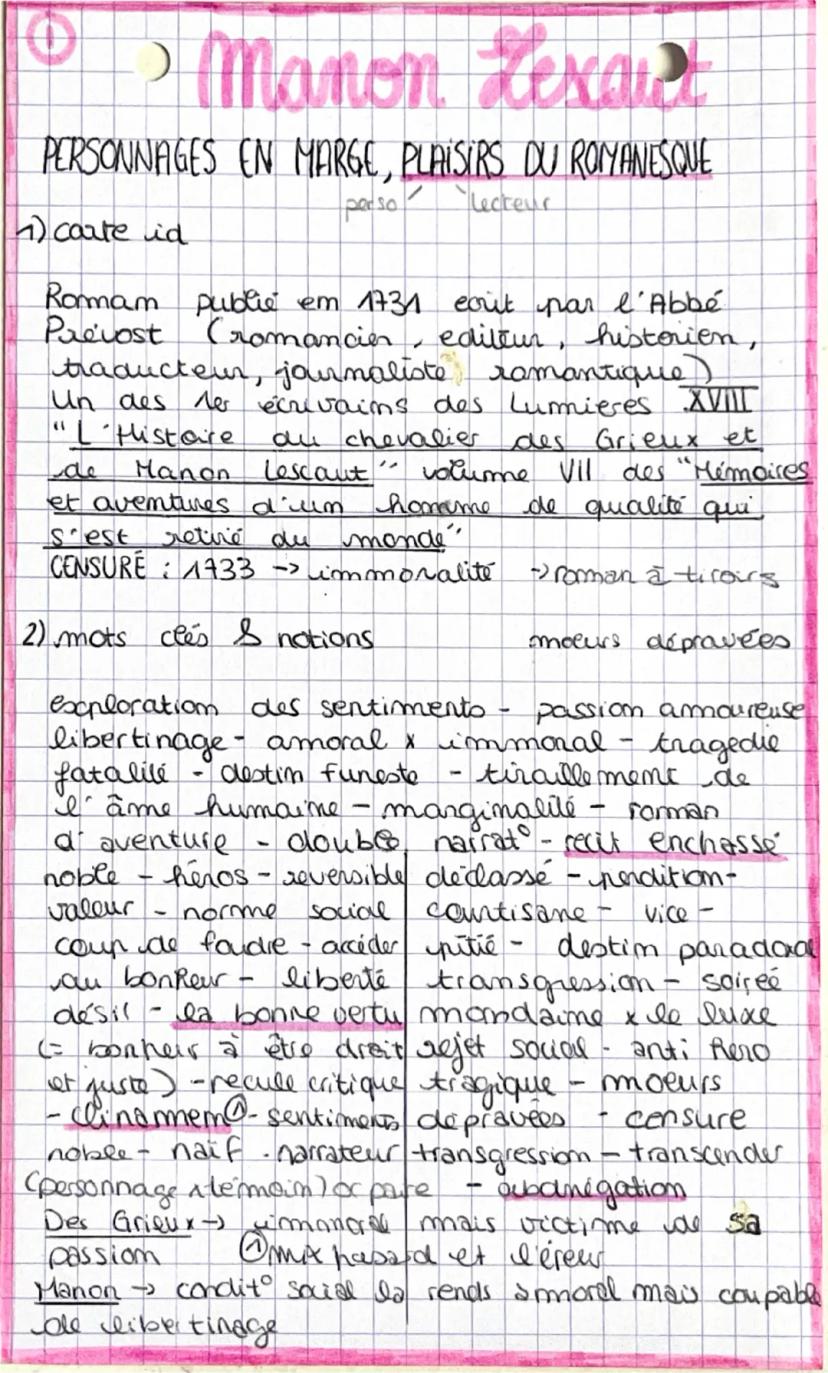 1
Manon Lexaut
PERSONNAGES EN MARGE, PLAISIRS DU ROMANESQUE
perso lecteur
1) carte id
Romam publié em 1731 ecrit par l'Abbé
Prévost (romancier, editeur, historien,
traducteur, journaliste romantique)
Un des 1er écrivains des Lumieres XVIII
"L'Histoire du chevalier des Grieux et
de Manon Lescaut" volume VII des "Mémoires
et aventures d'un homme de qualité qui
s'est retiré du monde"
CENSURÉ : 1733 -> immoralité -> roman à tiroirs
2) mots clés & notions moeurs dépravées
exploration des sentiments - passion amoureuse
libertinage - amoral x immoral - tragedie
fatalité - destin funeste - tiraillement de
l'âme humaine - marginalité - roman
d'aventure - double narrat° - recit enchassé
noble - héros - reversible
valeur - norme social
coup de foudre - accéder
au bonheur - liberté
désil - la bonne vertu
(= bonheur à être droit
et juste) - recule critique
- clinamen ① - sentiments
noble - naïf . narrateur
(personnage x témoin)
déclassé - perdition -
courtisane - vice -
pitié - destin paradoxal
transgression - soireé
mondaine x le luxe
rejet social - anti hero
tragique - moeurs
dépravées - censure
transgression - transcender
Des Grieux -> immoral mais victime de sa
passion ① mix hasard et
Manon -> condit° social la rends amoral mais coupable
de libertinage